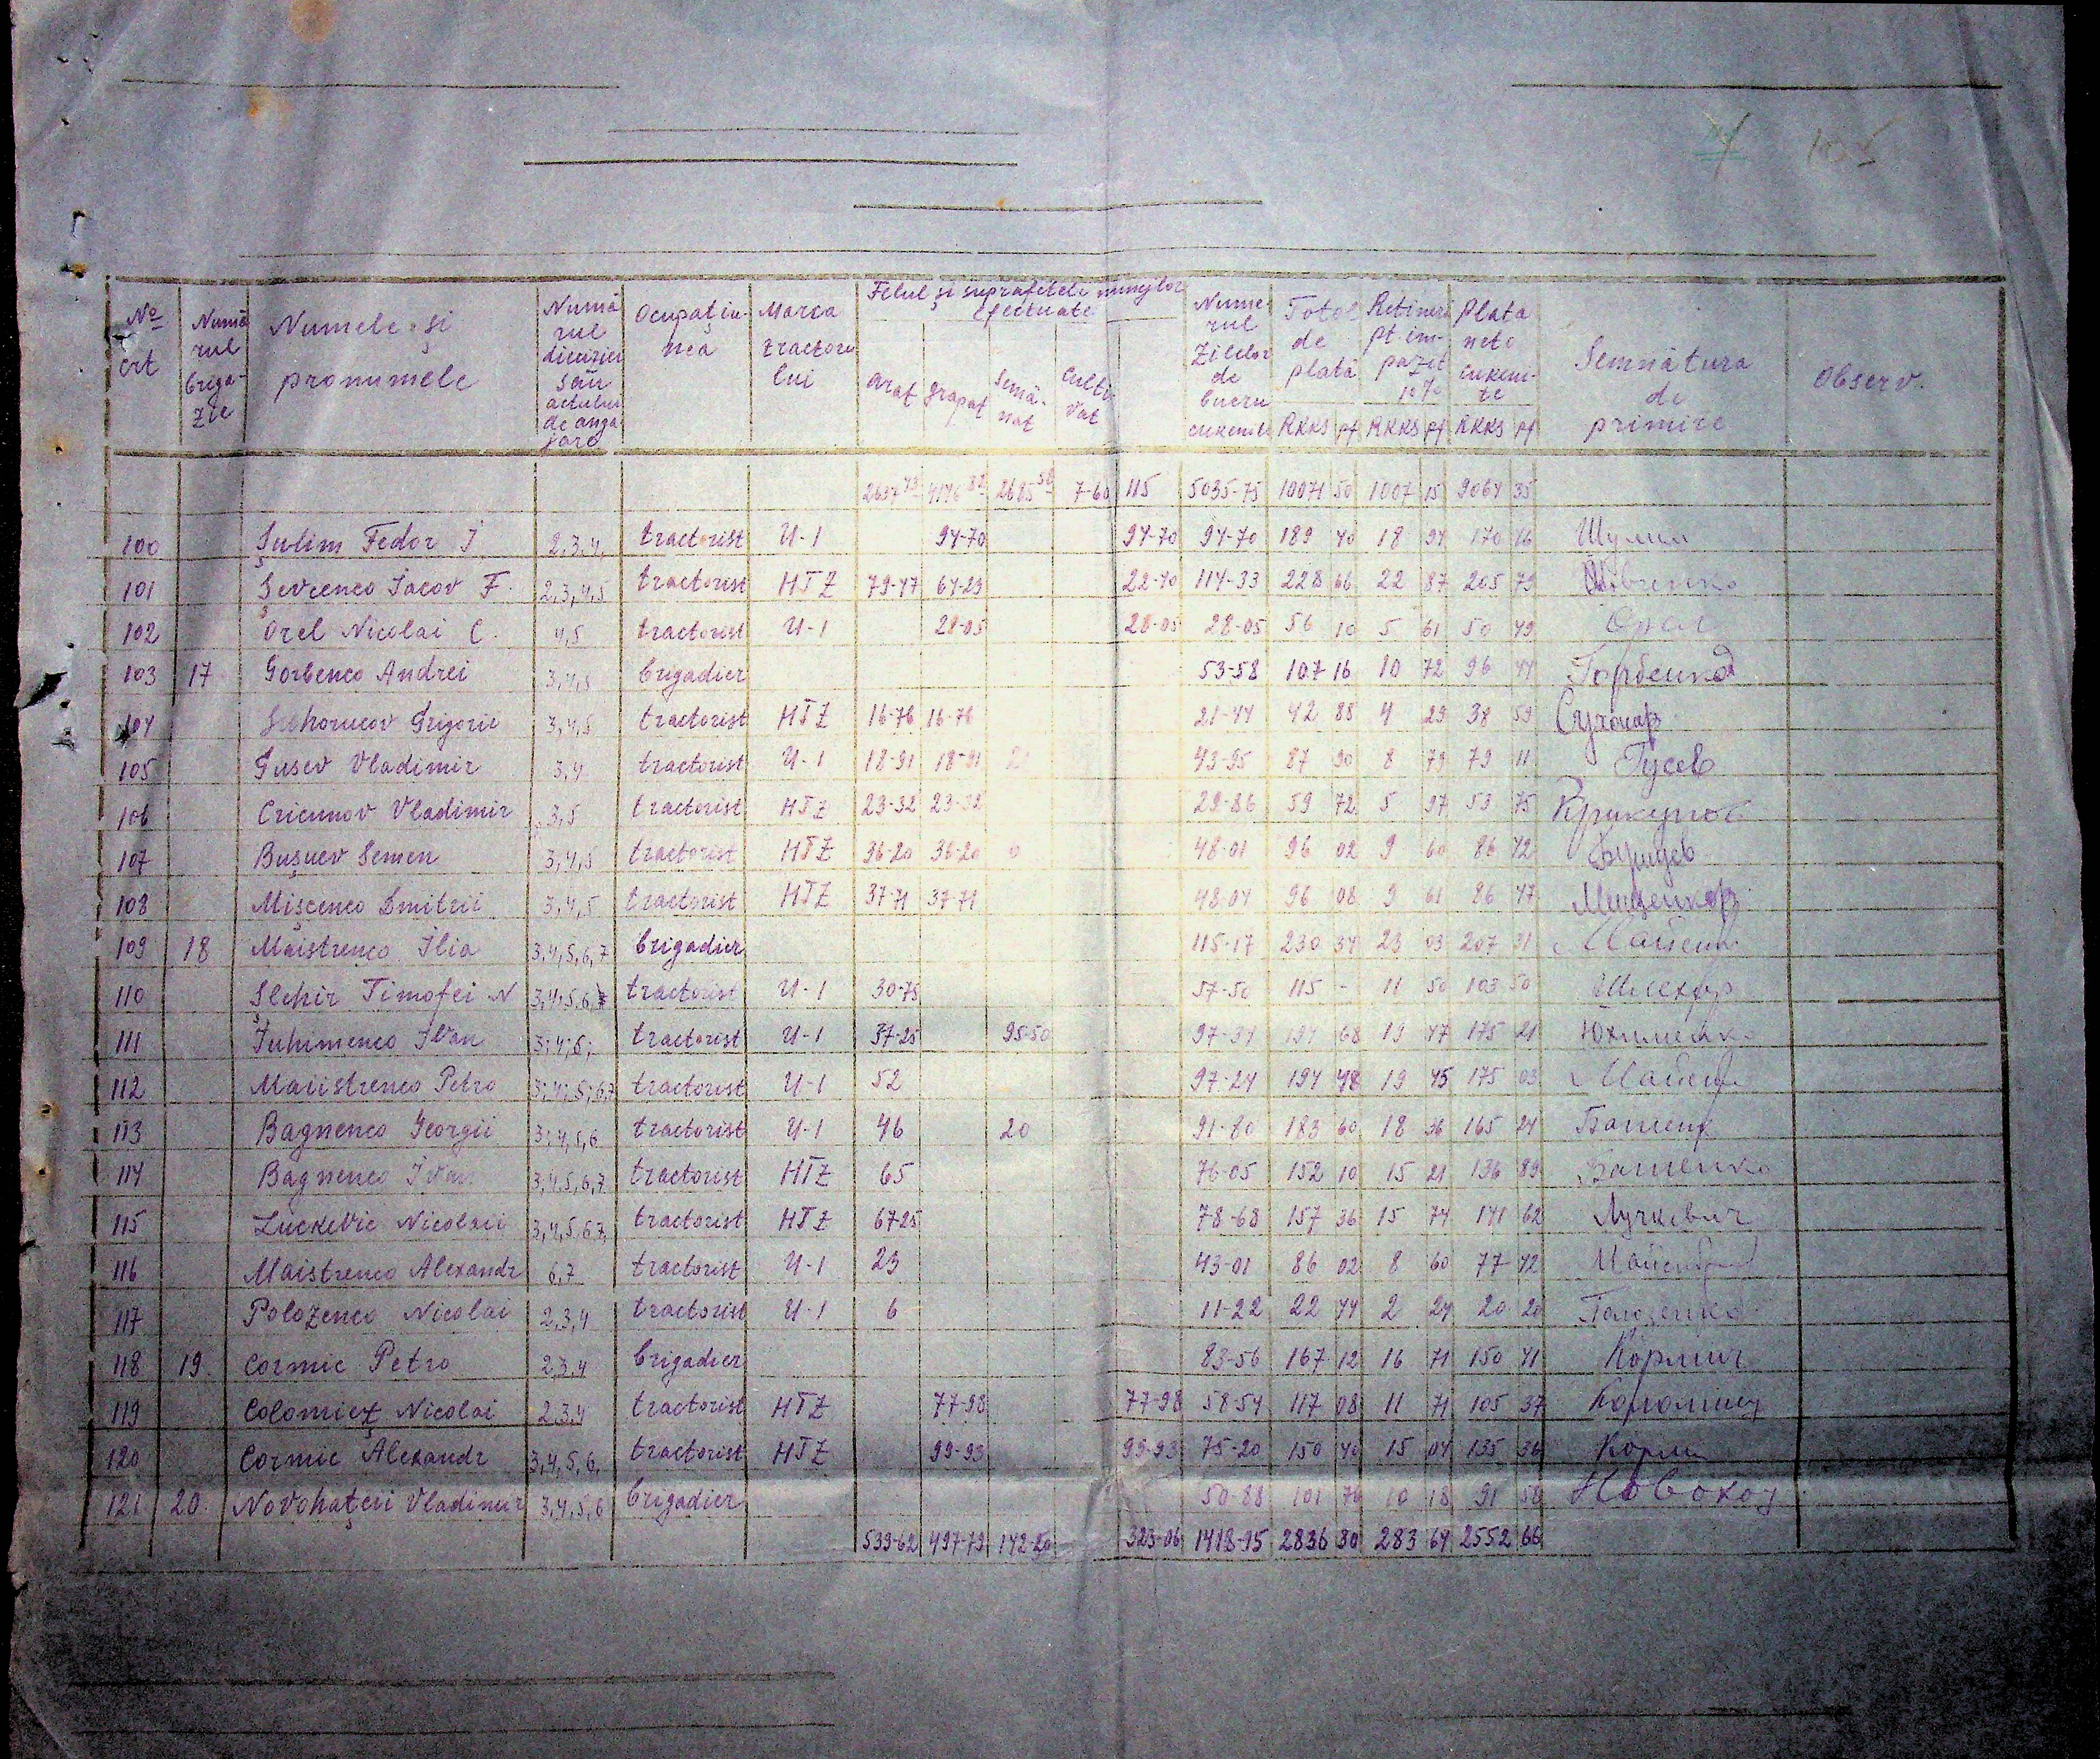 105
Nº crt Numărul brigăzie Numele și pronumele Numărul diviziei sau actului de angajare Ocupațiunea Marca tractorului Felul și suprafețele muncilor efectuate arat grapat semănat cultivat Numerul zilelor de lucru cuvenite Total de plată RKKS pf Rețineri pt. impozit 10% RKKS pf Plata neto cuvenite RKKS pf Semnătura de primire Observ.
7-60 115 5035-75 10071 50 1007 15 9064 35
100 Șulim Fedor I 2,3,4, tractorist U-1 94-70 94-70 94-70 189 40 18 94 170 16 Шулим
101 Șevcenco Iacov F. 2,3,4,5 tractorist HTZ 79-47 64-29 22-40 114-33 228 66 22 87 205 79 Шевченко
102 Orel Nicolai C. 4,5 tractorist U-1 28-05 28-05 28-05 56 10 5 61 50 49 Орел
103 17 Gorbenco Andrei 3,4,5 brigadier 53-58 107 16 10 72 96 44 Горбенко
104 Suhorucov Grigorie 3,4,5 tractorist HTZ 16-76 16-76 21-44 42 88 4 29 38 59 Сухокор
105 Gusev Vladimir 3,4 tractorist U-1 18-91 18-91 43-95 87 90 8 79 79 11 Гусев
106 Cricunov Vladimir 3,5 tractorist HTZ 23-32 23-32 29-86 59 72 5 97 53 75 Крикунов
107 Bușuev Semen 3,4,5 tractorist HTZ 36-20 36-20 48-01 96 02 9 60 86 42 Бушуев
108 Mișcenco Dmitrii 3,4,5 tractorist HTZ 37-71 37-71 48-04 96 08 9 61 86 47
109 18 Maistrenco Ilia 3,4,5,6,7 brigadier 115-17 230 34 23 03 207 31
110 Șlehir Timofei N 3,4,5,6,7 tractorist U-1 30-75 57-50 115 - 11 50 103 50
111 Iuhimenco Ivan 3;4;5; tractorist U-1 37-25 95-50 97-34 194 68 19 47 175 21 Юхименко
112 Maiistrenco Petro 3;4;5;6,7 tractorist U-1 52 97-24 194 48 19 45 175 03
113 Bagnenco Georgii 3;4,5,6 tractorist U-1 46 20 91-80 183 60 18 36 165 24
114 Bagnenco Ivan 3,4,5,6,7 tractorist HTZ 65 76-05 152 10 15 21 136 89
115 Luckevic Nicolaii 3,4,5,6,7, tractorist HTZ 67-25 78-68 157 36 15 74 141 62 Лучкевич
116 Maistrenco Alexandr 6,7 tractorist U-1 23 43-01 86 02 8 60 77 42
117 Polozenco Nicolai 2,3,4 tractorist U-1 6 11-22 22 44 2 24 20 20
118 19. Cormic Petro 2,3,4 brigadier 83-56 167 12 16 71 150 41 Кормич
119 Colomieț Nicolai 2,3,4 tractorist HTZ 77-98 77-98 58-54 117 08 11 71 105 37
120 Cormic Alexandr 3,4,5,6, tractorist HTZ 99-93 99-93 75-20 150 40 15 04 135 36
121 20. Novohațcii Vladimir 3,4,5,6 brigadier 50-88 101 76 10 18 91 58
539-62 497-79 142-20 323-06 1418-95 2836 80 283 64 2552 66